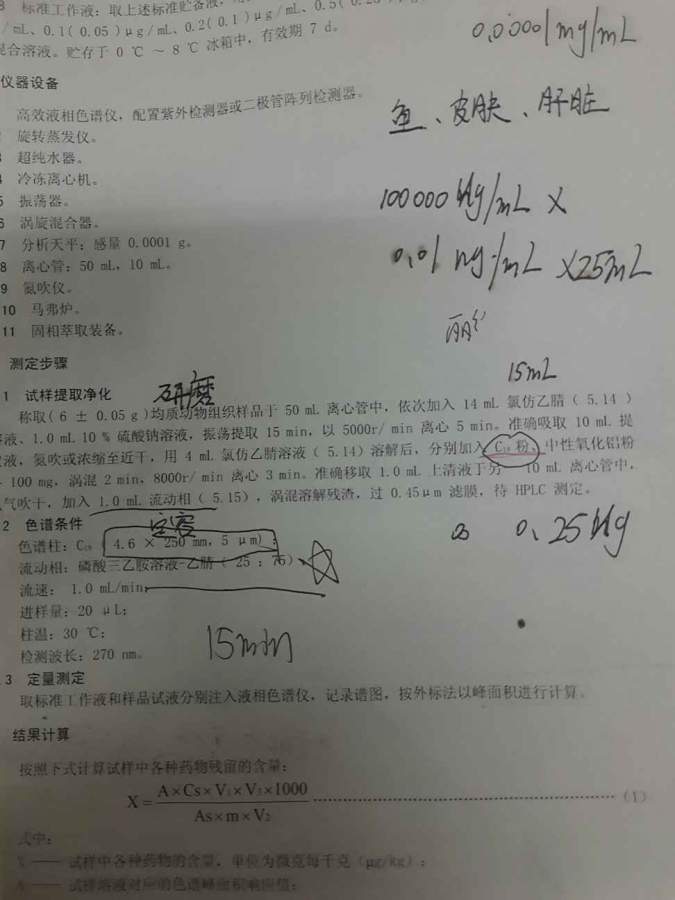 标准工作液：取上述标准贮备液，
/mL、0.1(0.05)μg/mL、0.2(0.1)μg/mL、0.5(
混合溶液。贮存于 0 ℃ ～ 8 ℃ 冰箱中，有效期 7 d。
0.00001mg/mL
仪器设备
高效液相色谱仪，配置紫外检测器或二极管阵列检测器。
鱼、皮肤、肝脏
旋转蒸发仪。
超纯水器。
冷冻离心机。
5 振荡器。
100000 ng/mL ×
6 涡旋混合器。
7 分析天平：感量 0.0001 g。
8 离心管：50 mL，10 mL。
0.01 ng/mL ×25mL
9 氮吹仪。
10 马弗炉。
11 固相萃取装备。
测定步骤
15mL
1 试样提取净化
研磨
称取(6 ± 0.05 g)均质动物组织样品于 50 mL 离心管中，依次加入 14 mL 氯仿乙腈（5.14）
溶液、1.0 mL 10 % 硫酸钠溶液，振荡提取 15 min，以 5000r/min 离心 5 min。准确吸取 10 mL 提
取液，氮吹或浓缩至近干，用 4 mL 氯仿乙腈溶液（5.14）溶解后，分别加入 C₁₈ 粉、中性氧化铝粉
100 mg，涡混 2 min，8000r/min 离心 3 min。准确移取 1.0 mL 上清液于另一 10 mL 离心管中，
气吹干，加入 1.0 mL 流动相（5.15），涡混溶解残渣，过 0.45μm 滤膜，待 HPLC 测定。
2 色谱条件
定容
0.25
色谱柱：C₁₈（4.6 × 250 mm，5 μm）；
流动相：磷酸三乙胺溶液-乙腈（25：75）
流速： 1.0 mL/min；
进样量：20 μL；
柱温：30 ℃；
15min
检测波长：270 nm。
3 定量测定
取标准工作液和样品试液分别注入液相色谱仪，记录谱图，按外标法以峰面积进行计算。
结果计算
按照下式计算试样中各种药物残留的含量：
X=A×Cs×V₁×V₃×1000/As×m×V₂ ……………………(1)
式中：
X —— 试样中各种药物的含量，单位为微克每千克（μg/kg）；
A —— 试样溶液对应的色谱峰面积响应值；